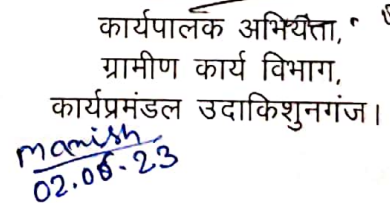 कार्यपालक अभियंता,
ग्रामीण कार्य विभाग,
कार्यप्रमंडल उदाकिशुनगंज।
manish
02.06.23